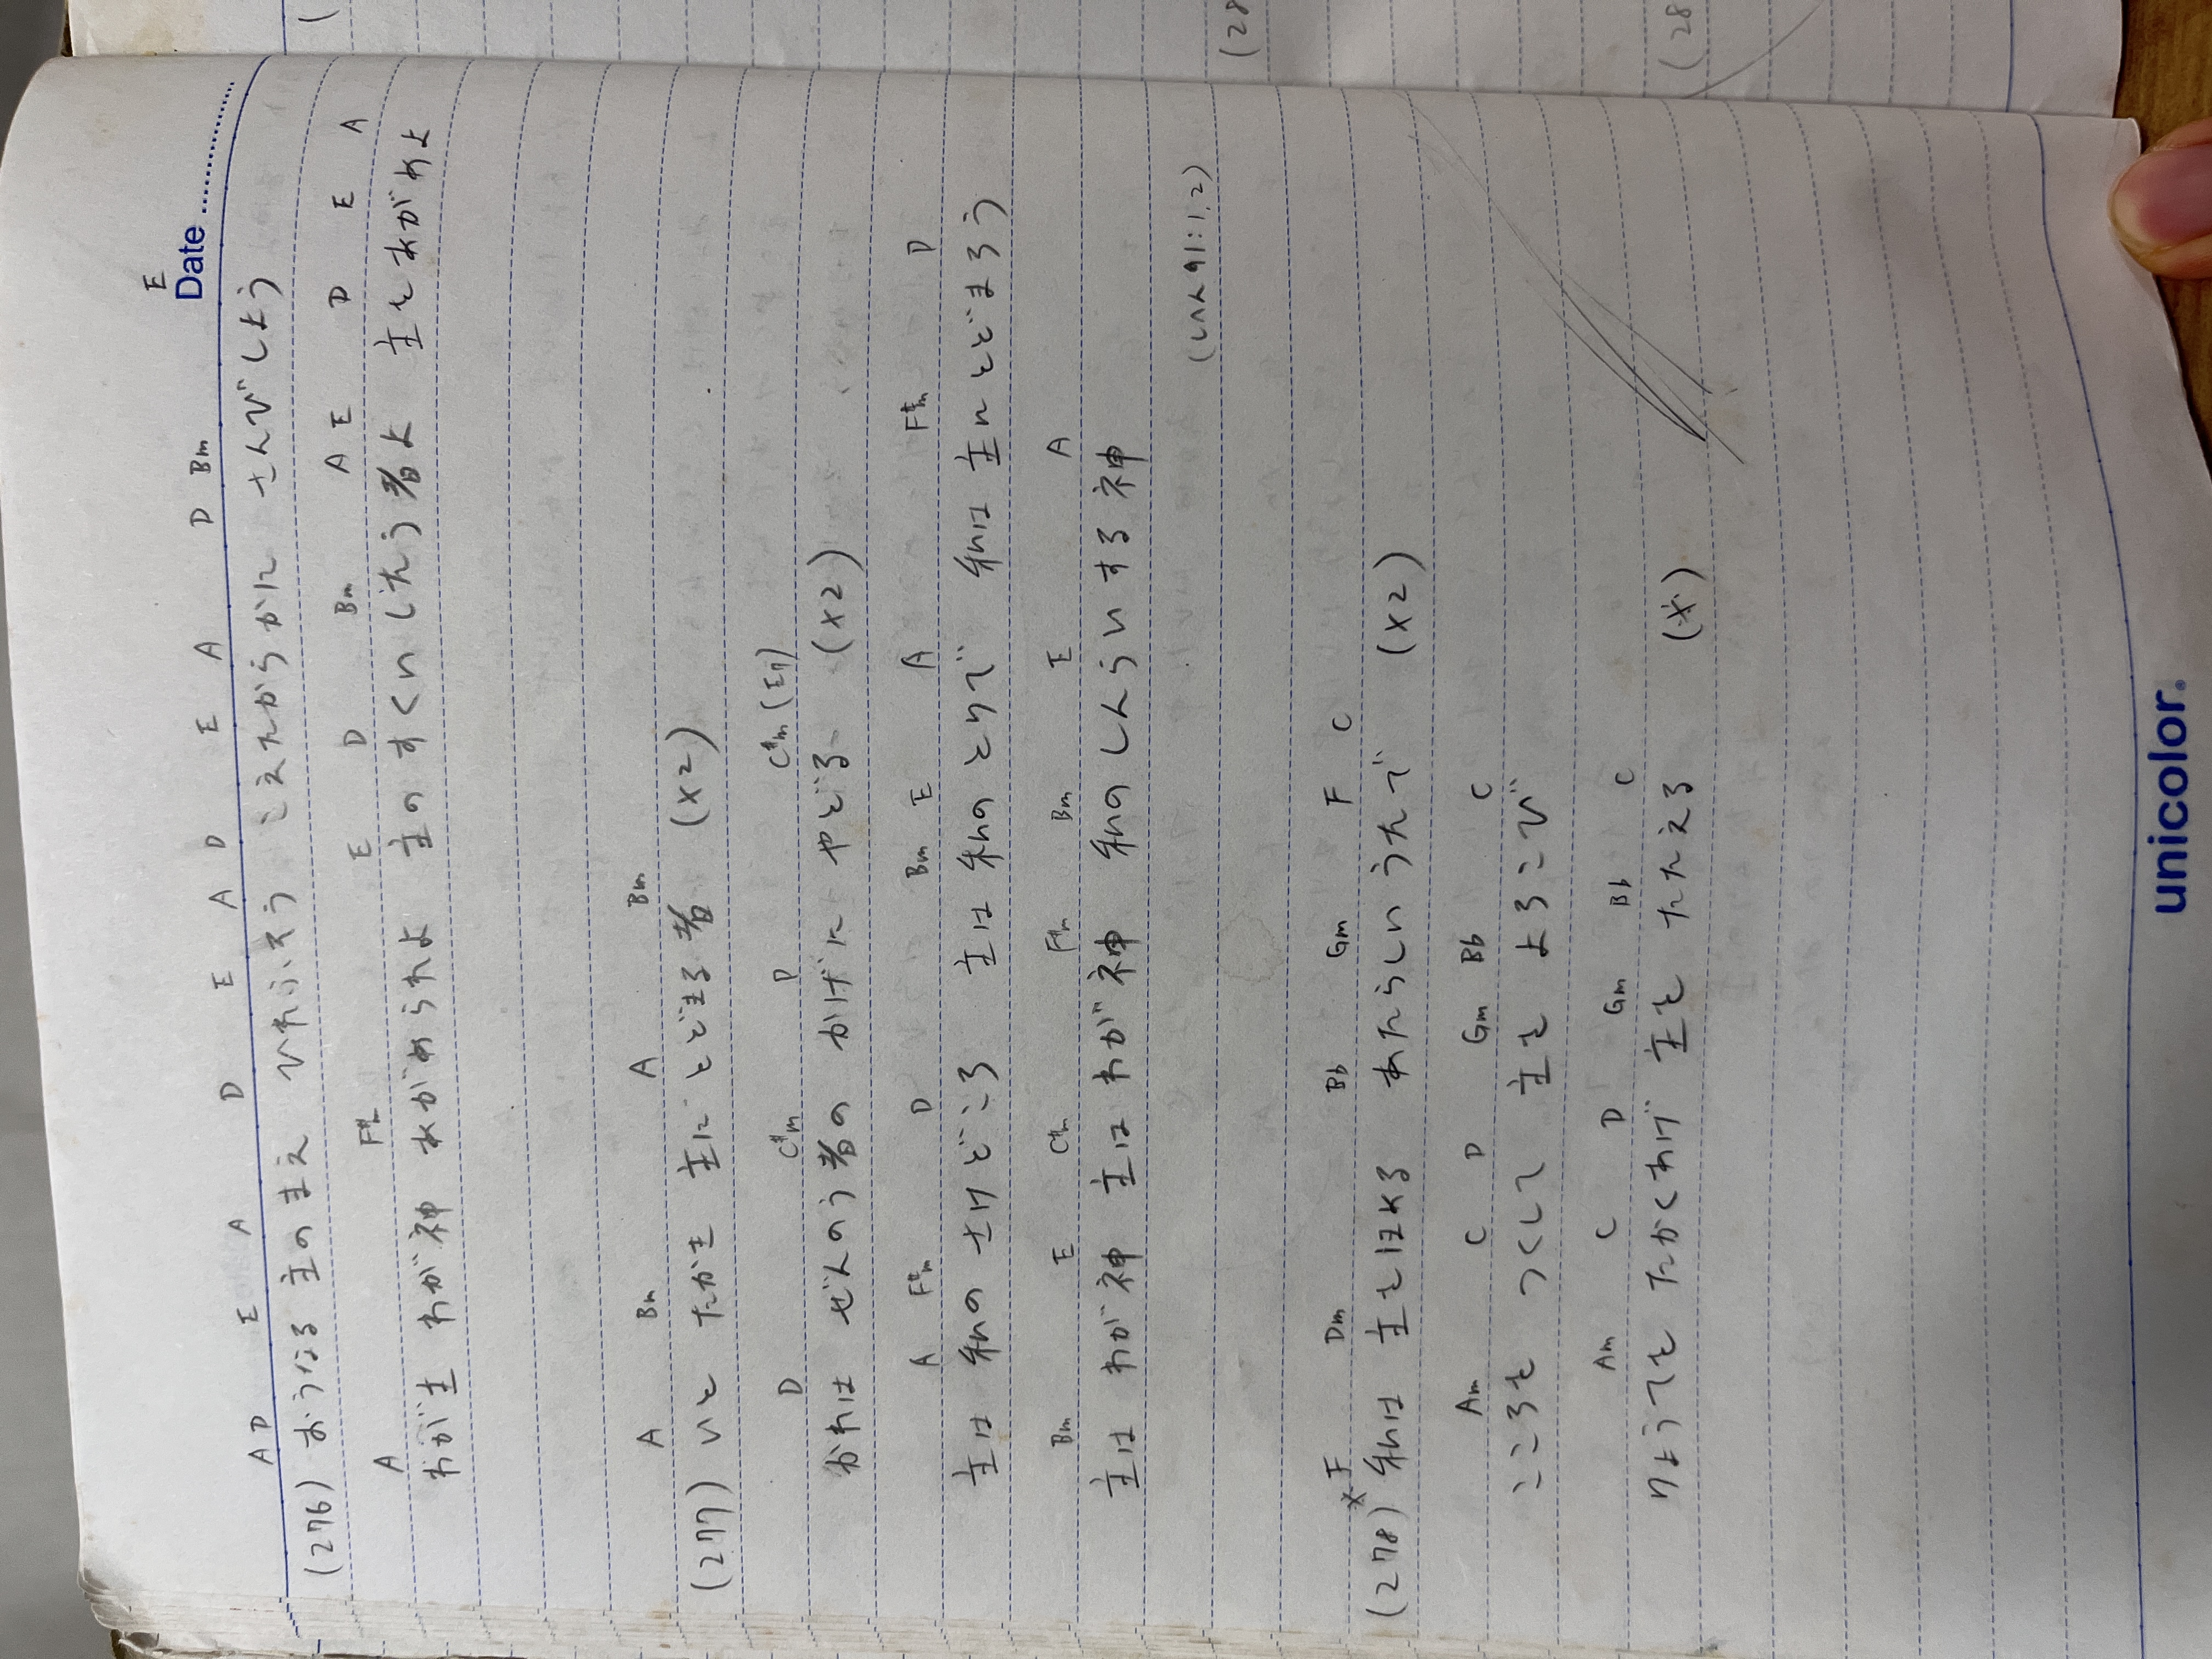 E
Date
A D E A D E A D E A D Bm
(276) おうなる 主のまえ ひれふそう こえたからかに さんびしよう
A F#m E D Bm A E D E A
わが主 わが神 あがめられよ 主のすくいしたう者よ 主をあがめよ
A Bm A Bm
(277) いと たかき 主に とどまる者 (x2)
D C#m D C#m (E7)
かれは ぜんのう者の かげに やどる (x2)
A F#m D Bm E A F#m D
主は 私の さけどころ 主は 私の とりで 私は 主に とどまろう
Bm E C#m F#m Bm E A
主は わが神 主は わが神 私の しんらいする 神
(しへん 91:1,2)
※ F Dm Bb Gm F C
(278) 私は 主をほめる あたらしい うたで (x2)
Am C D Gm Bb C
こころを つくして 主を よろこび
Am C D Gm Bb C
りょうてを たかくあげ 主を たたえる (※)
unicolor.
(28
(28